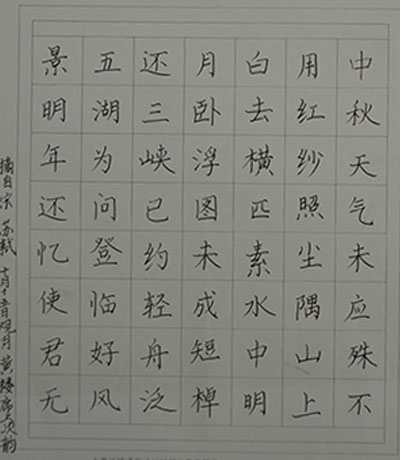 中秋天气未应殊不
用红纱照尘隅山上
白去横匹素水中明
月卧浮图未成短棹
还三峡已约轻舟泛
五湖为问登临好风
景明年还忆使君无
摘自宋 苏轼 十月十五日观月黄楼席上次韵